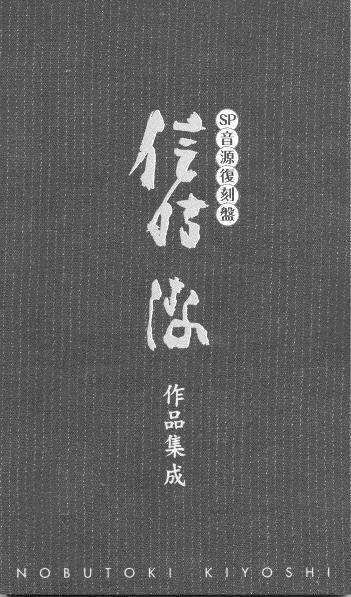 SP音源復刻盤
信時 潔
作品集成
NOBUTOKI KIYOSHI